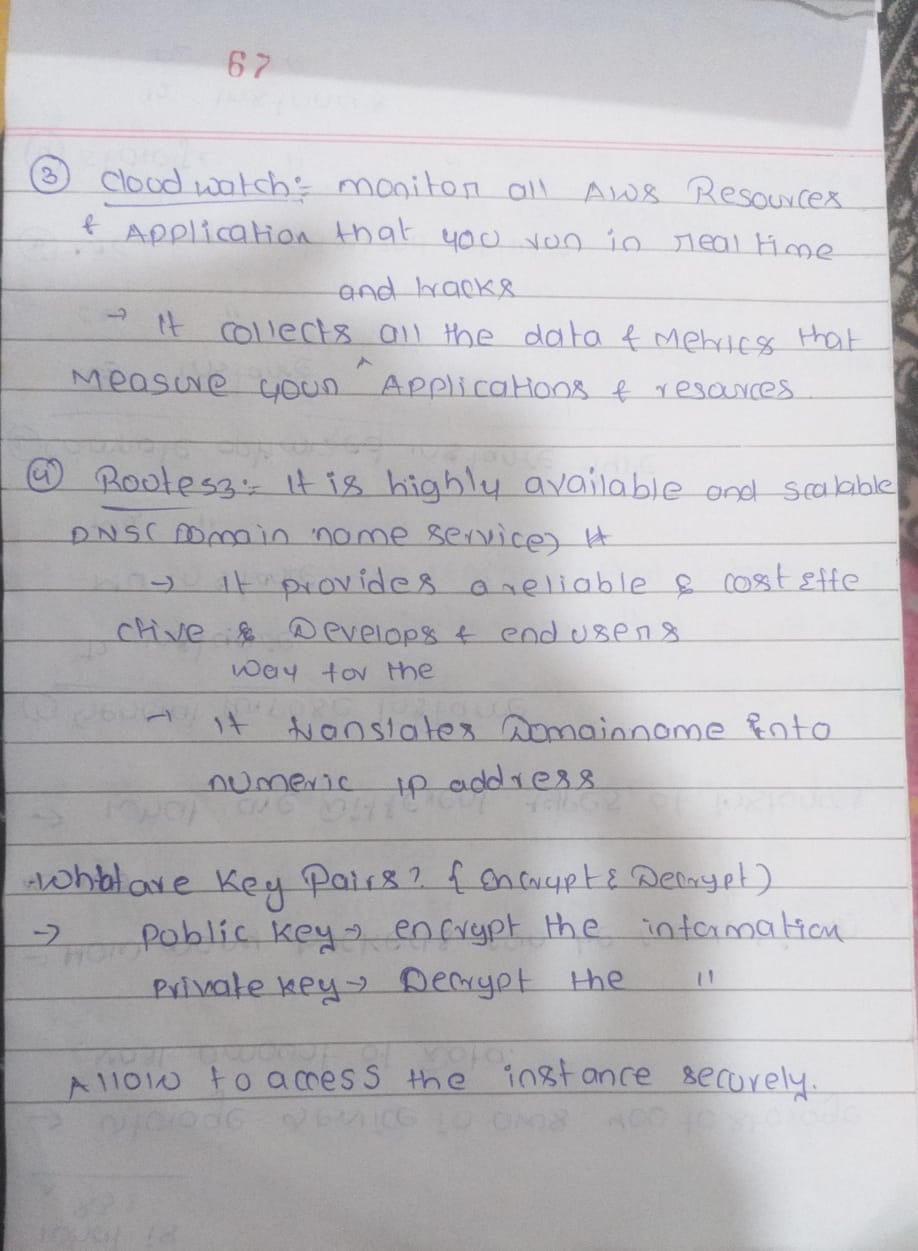 67
③ Cloud watch:- monitor all AWS Resources
& Application that you run in real time
and tracks
→ It collects all the data & Metrics that
Measure your ^ Applications & resources.
④ Rootes3:- It is highly available and scalable
DNS( Domain name service)
→ It provides a reliable & cost Effe
ctive & Develops & end users
way for the
→ It translates Domainname into
numeric ip address
What are Key Pairs? { Encrypt & Decrypt)
→ Public Key → encrypt the information
Private key → Decrypt the "
Allow to access the instance securely.